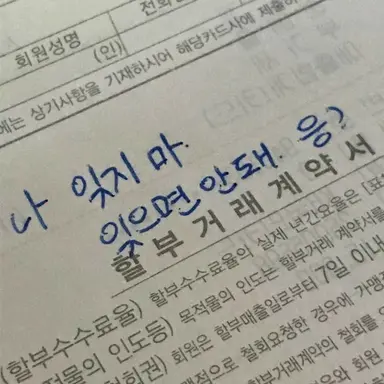 전화
회원성명
(인)
에는 상기사항을 기재하시어 해당카드사에 제출하
나 잊지 마.
잊으면 안돼. 응?
할부거래계약서
(할부수수료율) 할부수수료율의 실제 년간요율은 [표
적물의 인도등) 목적물의 인도는 할부거래 계약서를
철회권) 회원은 할부매출일로부터 7일 이내
적으로 철회요청한 경우에 가맹
할부거래계약의 철회를
회원